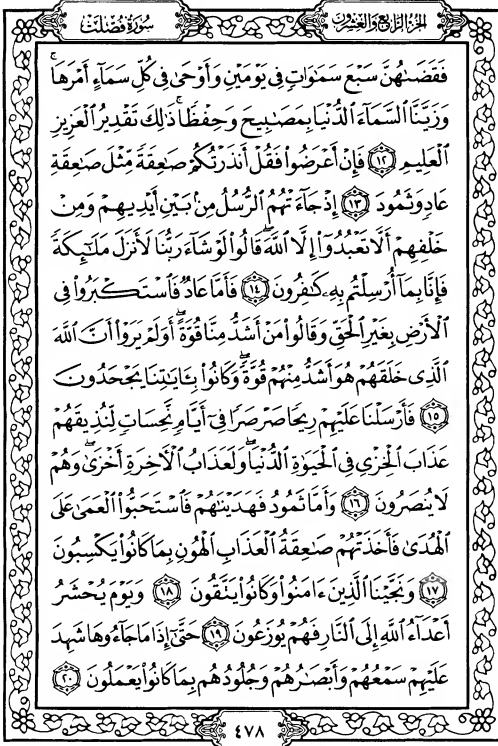 سُورَةُ فُصِّلَتْ
الجُزءُ الرَّابِعُ وَالعِشْرُونَ
فَقَضَىٰهُنَّ سَبْعَ سَمَٰوَاتٍ فِى يَوْمَيْنِ وَأَوْحَىٰ فِى كُلِّ سَمَآءٍ أَمْرَهَاۚ
وَزَيَّنَّا ٱلسَّمَآءَ ٱلدُّنْيَا بِمَصَٰبِيحَ وَحِفْظًاۚ ذَٰلِكَ تَقْدِيرُ ٱلْعَزِيزِ
ٱلْعَلِيمِ ﴿١٢﴾ فَإِنْ أَعْرَضُوا۟ فَقُلْ أَنذَرْتُكُمْ صَٰعِقَةً مِّثْلَ صَٰعِقَةِ
عَادٍ وَثَمُودَ ﴿١٣﴾ إِذْ جَآءَتْهُمُ ٱلرُّسُلُ مِنۢ بَيْنِ أَيْدِيهِمْ وَمِنْ
خَلْفِهِمْ أَلَّا تَعْبُدُوٓا۟ إِلَّا ٱللَّهَۖ قَالُوا۟ لَوْ شَآءَ رَبُّنَا لَأَنزَلَ مَلَٰٓئِكَةً
فَإِنَّا بِمَآ أُرْسِلْتُم بِهِۦ كَٰفِرُونَ ﴿١٤﴾ فَأَمَّا عَادٌ فَٱسْتَكْبَرُوا۟ فِى
ٱلْأَرْضِ بِغَيْرِ ٱلْحَقِّ وَقَالُوا۟ مَنْ أَشَدُّ مِنَّا قُوَّةًۖ أَوَلَمْ يَرَوْا۟ أَنَّ ٱللَّهَ
ٱلَّذِى خَلَقَهُمْ هُوَ أَشَدُّ مِنْهُمْ قُوَّةًۖ وَكَانُوا۟ بِـَٔايَٰتِنَا يَجْحَدُونَ
﴿١٥﴾ فَأَرْسَلْنَا عَلَيْهِمْ رِيحًا صَرْصَرًا فِىٓ أَيَّامٍ نَّحِسَاتٍ لِّنُذِيقَهُمْ
عَذَابَ ٱلْخِزْىِ فِى ٱلْحَيَوٰةِ ٱلدُّنْيَاۖ وَلَعَذَابُ ٱلْأَخِرَةِ أَخْزَىٰۖ وَهُمْ
لَا يُنصَرُونَ ﴿١٦﴾ وَأَمَّا ثَمُودُ فَهَدَيْنَٰهُمْ فَٱسْتَحَبُّوا۟ ٱلْعَمَىٰ عَلَى
ٱلْهُدَىٰ فَأَخَذَتْهُمْ صَٰعِقَةُ ٱلْعَذَابِ ٱلْهُونِ بِمَا كَانُوا۟ يَكْسِبُونَ
﴿١٧﴾ وَنَجَّيْنَا ٱلَّذِينَ ءَامَنُوا۟ وَكَانُوا۟ يَتَّقُونَ ﴿١٨﴾ وَيَوْمَ يُحْشَرُ
أَعْدَآءُ ٱللَّهِ إِلَى ٱلنَّارِ فَهُمْ يُوزَعُونَ ﴿١٩﴾ حَتَّىٰٓ إِذَا مَا جَآءُوهَا شَهِدَ
عَلَيْهِمْ سَمْعُهُمْ وَأَبْصَٰرُهُمْ وَجُلُودُهُم بِمَا كَانُوا۟ يَعْمَلُونَ ﴿٢٠﴾
٤٧٨